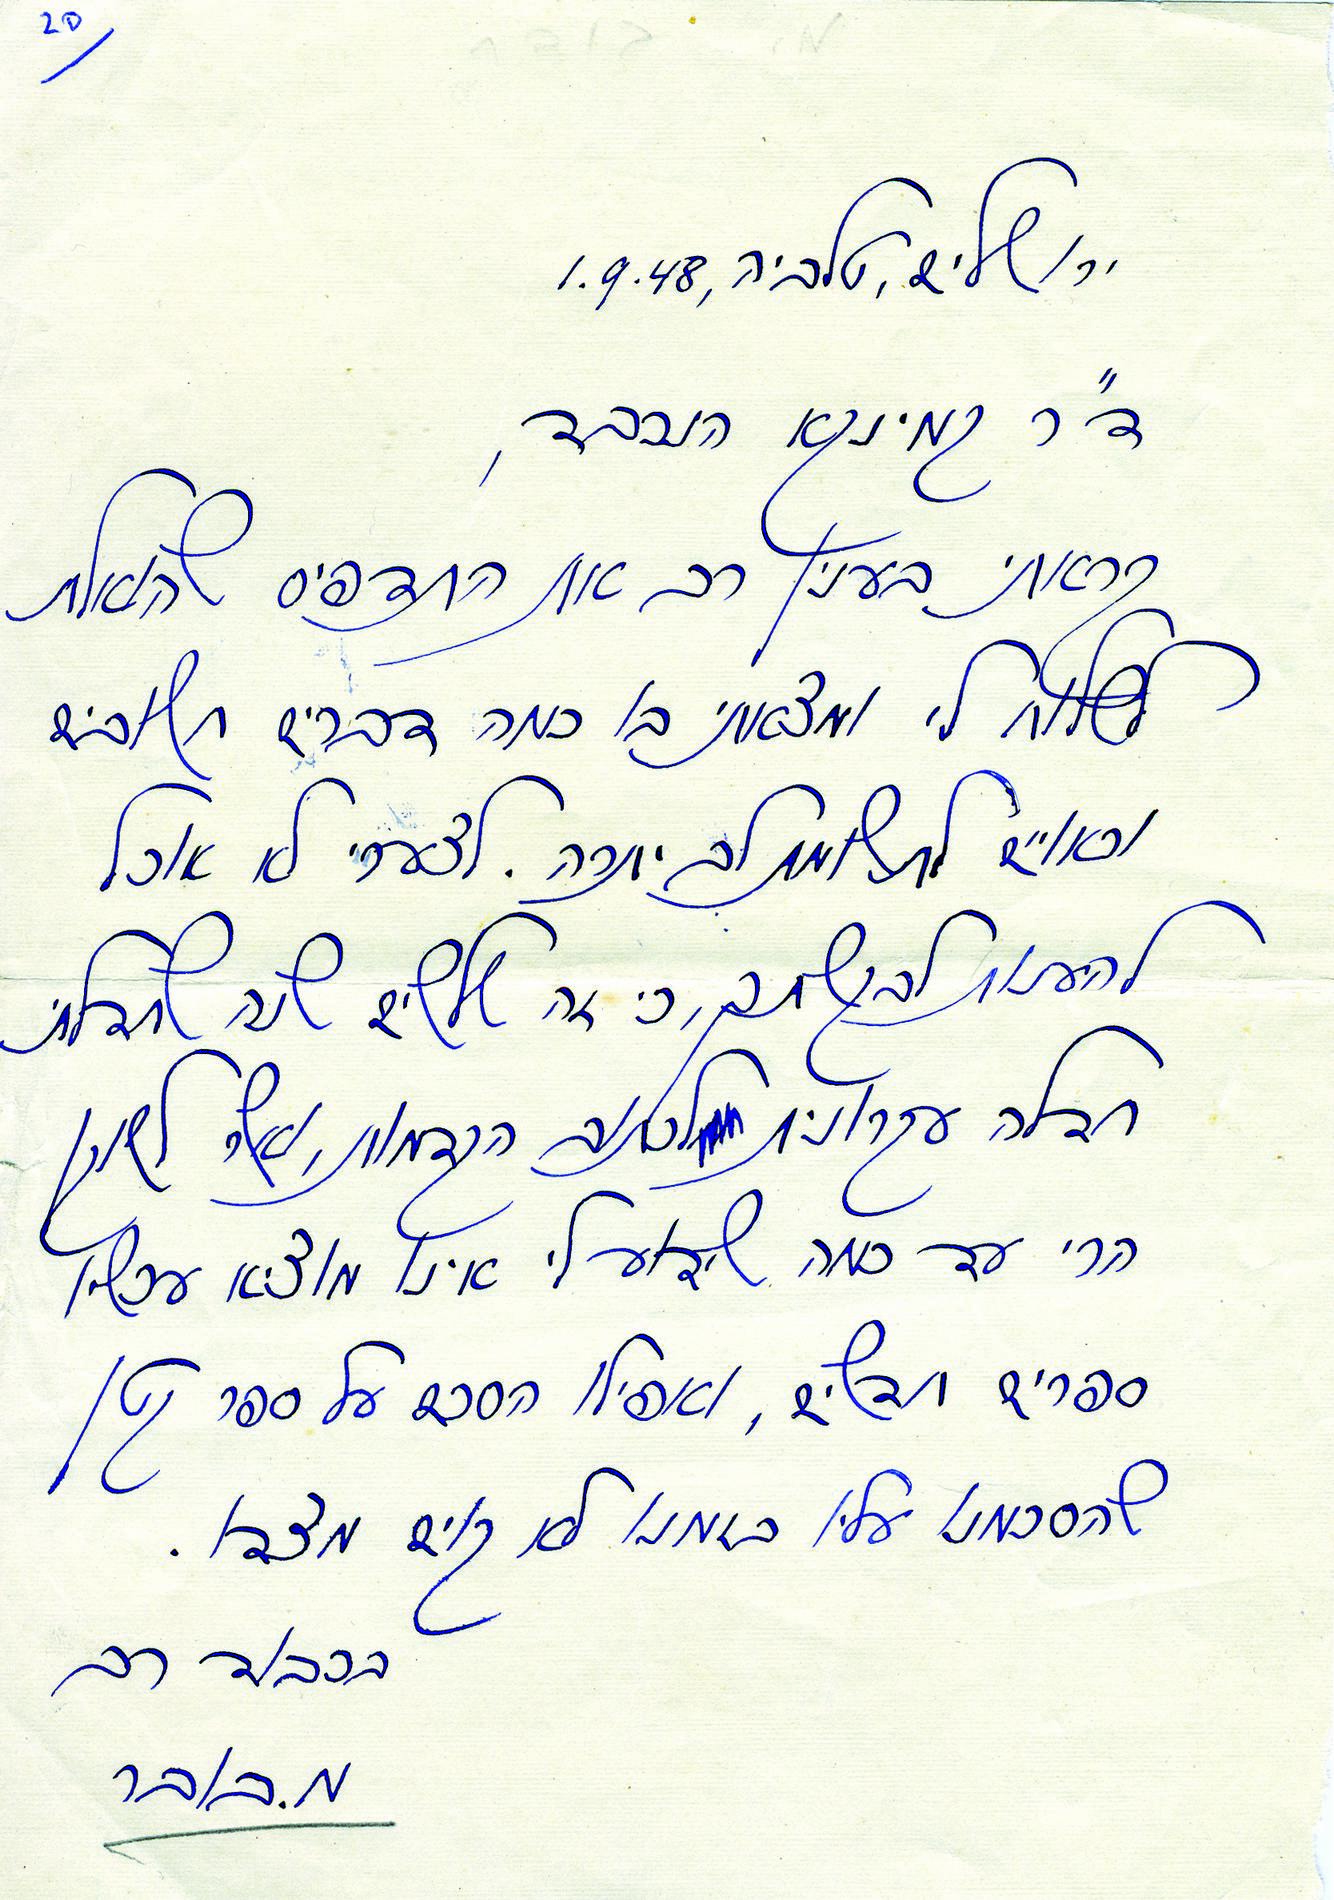 20
ירושלים, טלביה, 1.9.48
ד"ר קמינקא הנכבד,
קראתי בענין רב את התדפיס שהואלת
לשלוח לי ומצאתי בו כמה דברים חשובים
וראויים לתשומת לב יתרה. לצערי לא אוכל
להיענות לבקשתך, כי זה שלשים שנה שחדלתי
חדלה עקרונית מלכתוב הקדמות, ואשר לשוקן
הרי עד כמה שידוע לי אינו מוציא עכשיו
ספרים חדשים, ואפילו הסכם על ספר קטן
שהסכמנו עליו בזמנו לא קוים מצדו.
בכבוד רב
מ. בובר